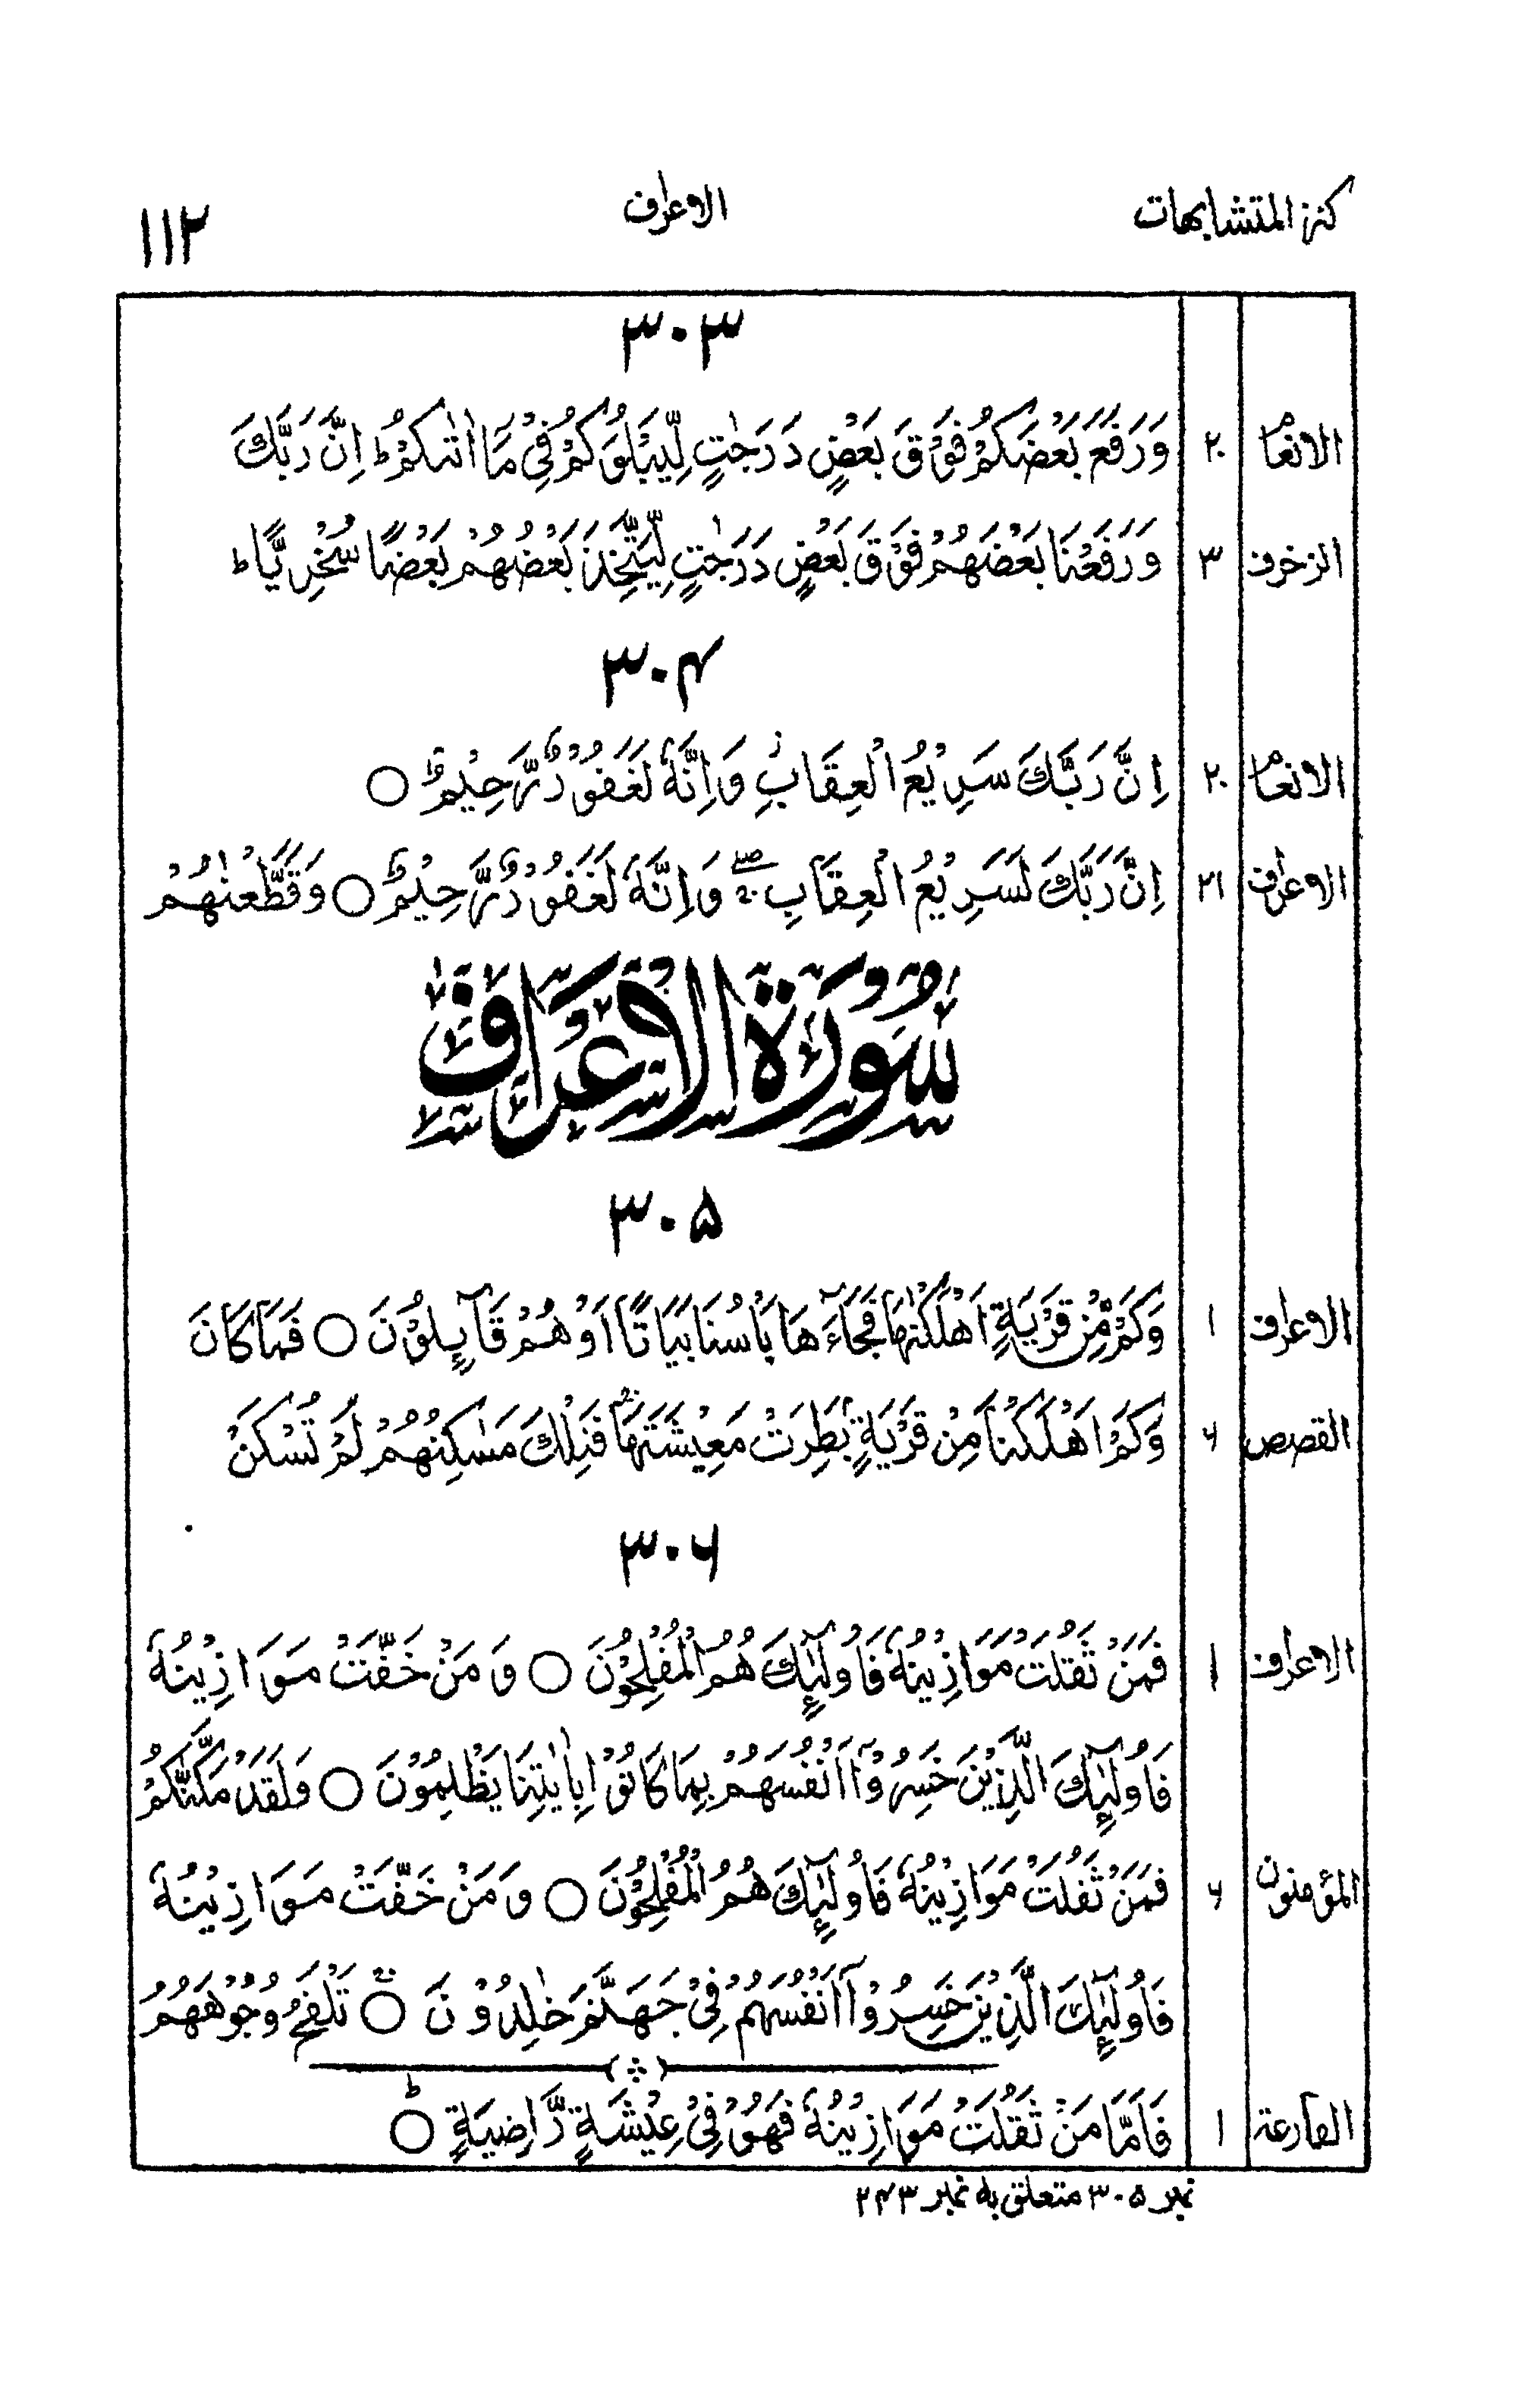 كنز المتشابهات الاعراف ۱۱۲
۳۰۳
الانعام ۲۰ وَرَفَعَ بَعْضَكُمْ فَوْقَ بَعْضٍ دَرَجٰتٍ لِّيَبْلُوَكُمْ فِيْ مَآ اٰتٰىكُمْ ؕ اِنَّ رَبَّكَ
الزخرف ۳ وَرَفَعْنَا بَعْضَهُمْ فَوْقَ بَعْضٍ دَرَجٰتٍ لِّيَتَّخِذَ بَعْضُهُمْ بَعْضًا سُخْرِيًّا ؕ
۳۰۴
الانعام ۲۰ اِنَّ رَبَّكَ سَرِيْعُ الْعِقَابِ ز وَاِنَّهٗ لَغَفُوْرٌ رَّحِيْمٌ ○
الاعراف ۲۱ اِنَّ رَبَّكَ لَسَرِيْعُ الْعِقَابِ ۖ وَاِنَّهٗ لَغَفُوْرٌ رَّحِيْمٌ ○ وَقَطَّعْنٰهُمْ
سُوْرَةُ الْاَعْرَافِ
۳۰۵
الاعراف ۱ وَكَمْ مِّنْ قَرْيَةٍ اَهْلَكْنٰهَا فَجَآءَهَا بَاْسُنَا بَيَاتًا اَوْ هُمْ قَآىِٕلُوْنَ ○ فَمَا كَانَ
القصص ۶ وَكَمْ اَهْلَكْنَا مِنْ قَرْيَةٍۢ بَطِرَتْ مَعِيْشَتَهَا ۚ فَتِلْكَ مَسٰكِنُهُمْ لَمْ تُسْكَنْ
۳۰۶
الاعراف ۱ فَمَنْ ثَقُلَتْ مَوَازِيْنُهٗ فَاُولٰٓئِكَ هُمُ الْمُفْلِحُوْنَ ○ وَمَنْ خَفَّتْ مَوَازِيْنُهٗ
فَاُولٰٓئِكَ الَّذِيْنَ خَسِرُوْٓا اَنْفُسَهُمْ بِمَا كَانُوْا بِاٰيٰتِنَا يَظْلِمُوْنَ ○ وَلَقَدْ مَكَّنّٰكُمْ
المؤمنون ۶ فَمَنْ ثَقُلَتْ مَوَازِيْنُهٗ فَاُولٰٓئِكَ هُمُ الْمُفْلِحُوْنَ ○ وَمَنْ خَفَّتْ مَوَازِيْنُهٗ
فَاُولٰٓئِكَ الَّذِيْنَ خَسِرُوْٓا اَنْفُسَهُمْ فِيْ جَهَنَّمَ خٰلِدُوْنَ ○ ۚ تَلْفَحُ وُجُوْهَهُمُ
القارعة ۱ فَاَمَّا مَنْ ثَقُلَتْ مَوَازِيْنُهٗ فَهُوَ فِيْ عِيْشَةٍ رَّاضِيَةٍ ○ ؕ
نمبر ۳۰۵ متعلق بہ نمبر ۲۴۳